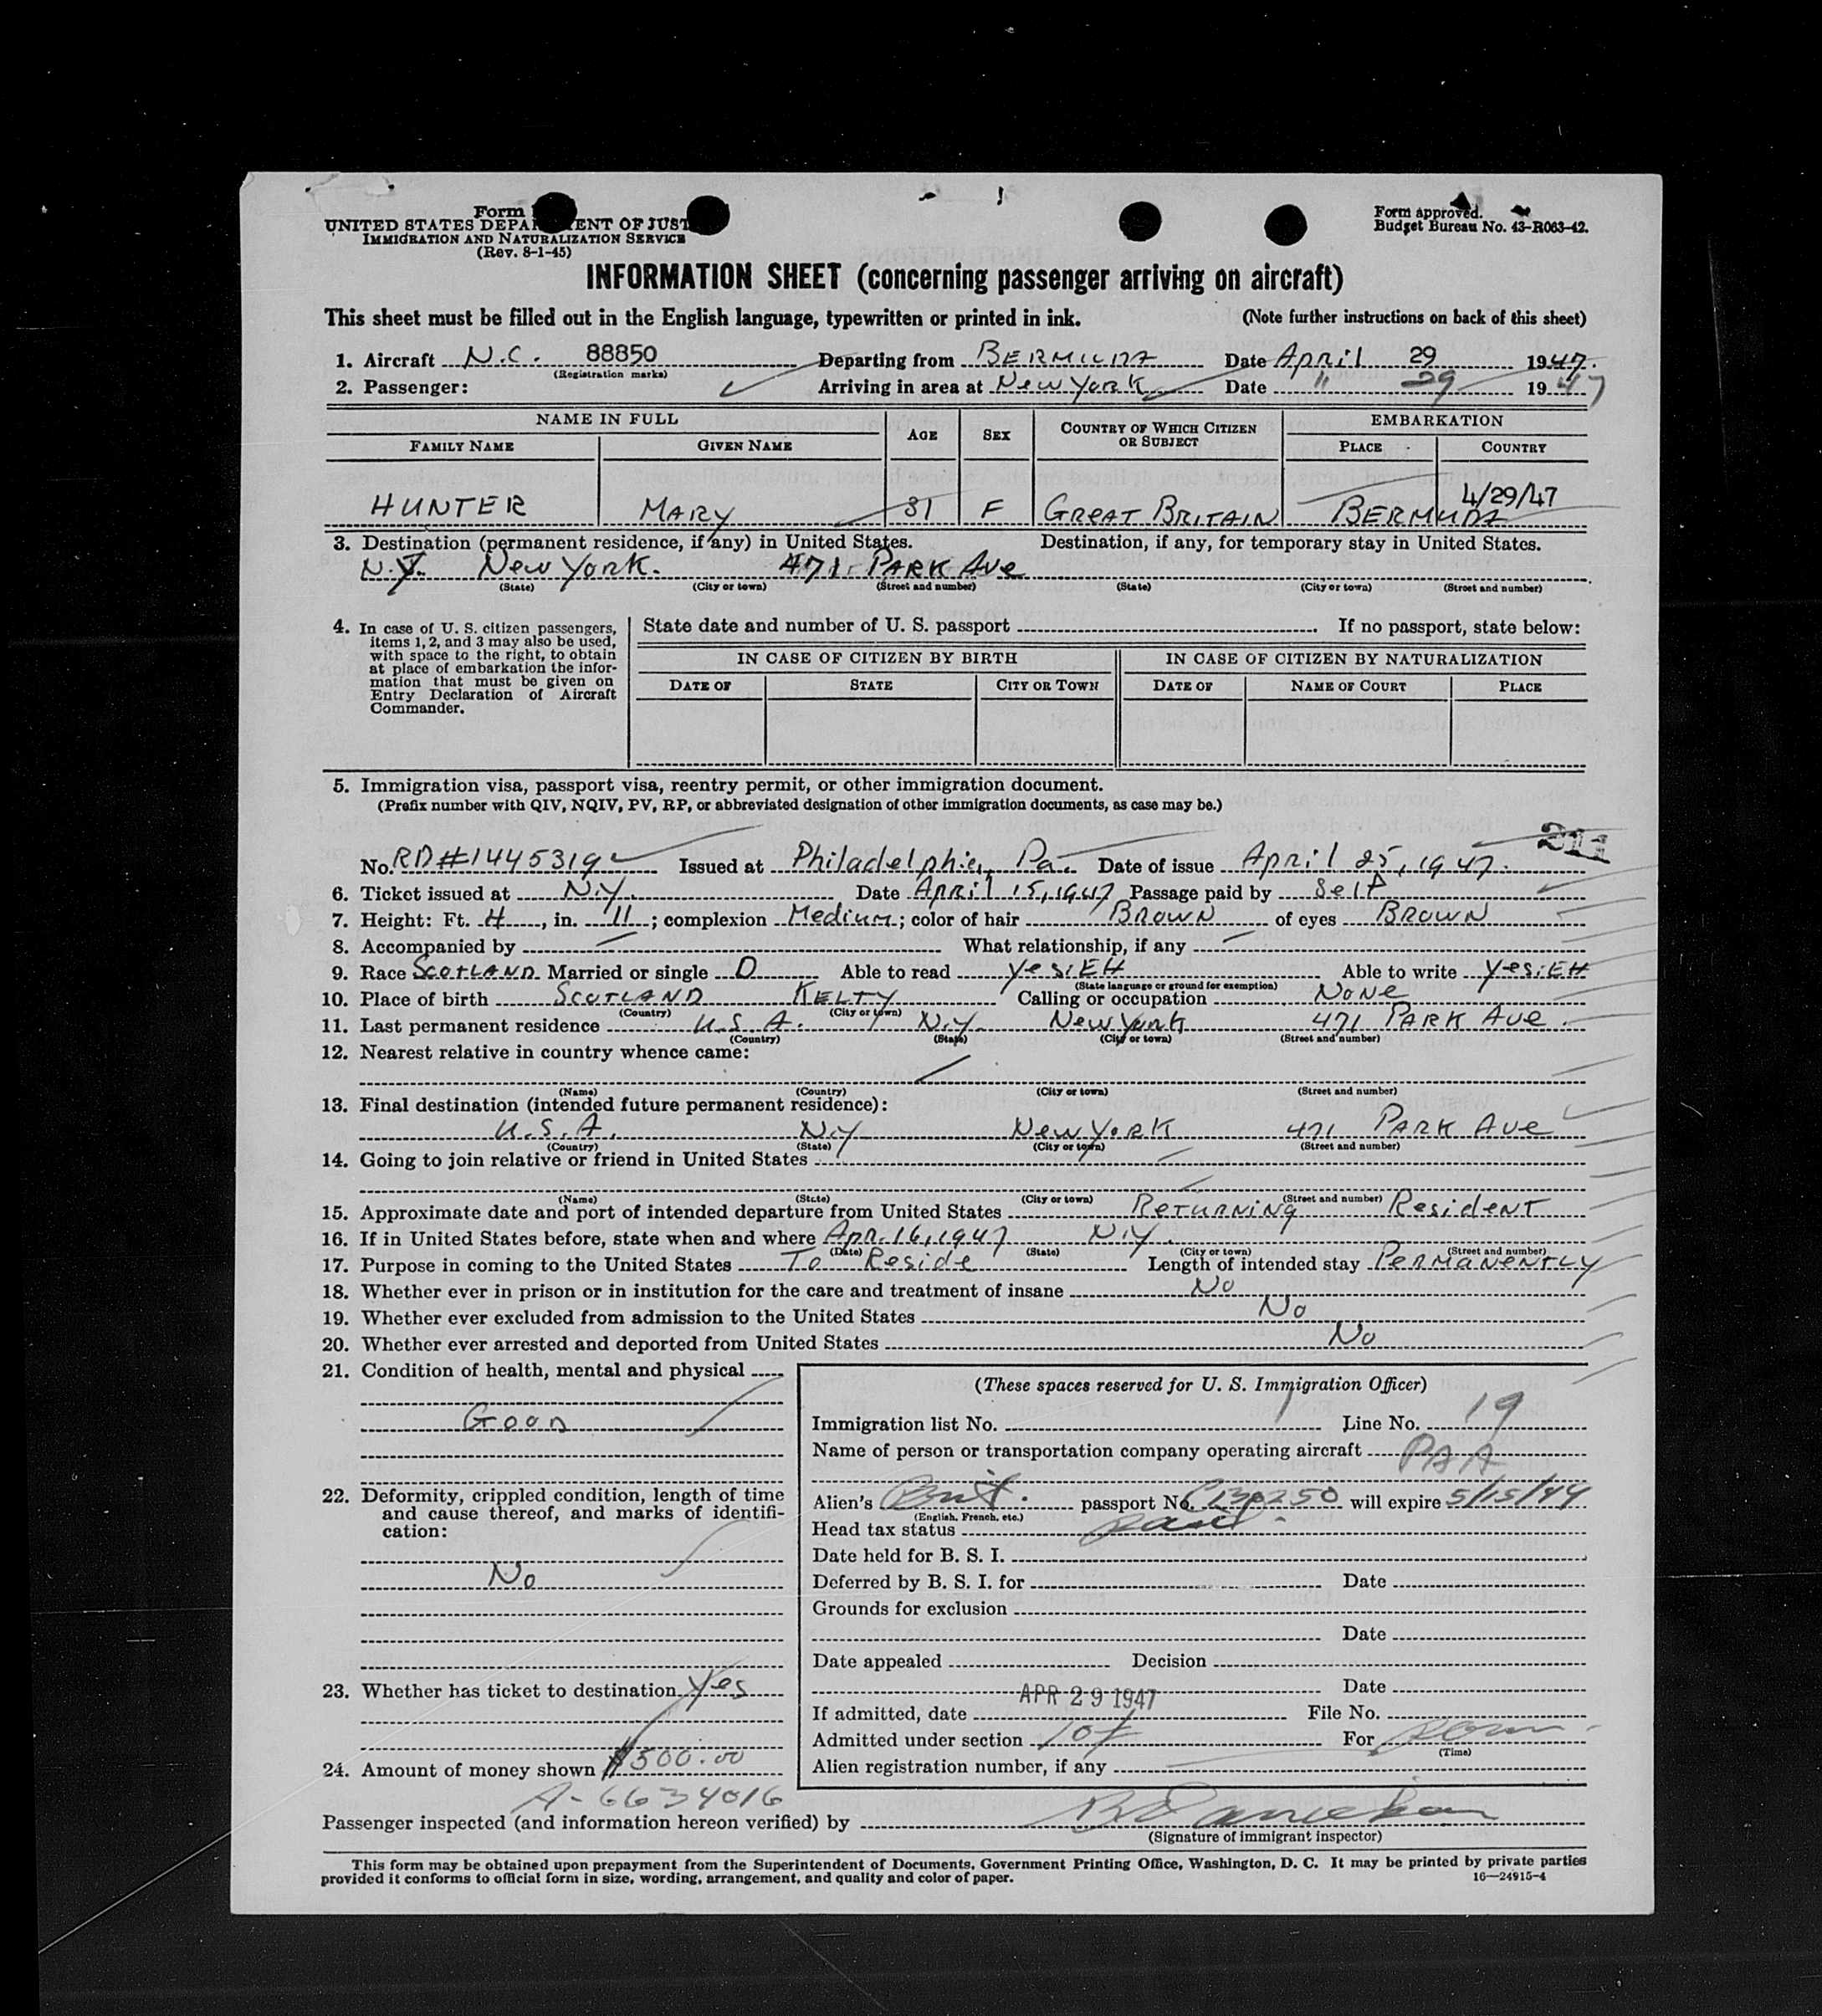 Form
UNITED STATES DEPA ENT OF JUST
IMMIGRATION AND NATURALIZATION SERVICE
(Rev. 8-1-45)
Form approved.
Budget Bureau No. 43-R063-42.
INFORMATION SHEET (concerning passenger arriving on aircraft)
This sheet must be filled out in the English language, typewritten or printed in ink. (Note further instructions on back of this sheet)
1. Aircraft N.C. 88850 Departing from BERMUDA Date April 29 1947.
(Registration marks)
2. Passenger: Arriving in area at New York Date " 29 1947
NAME IN FULL AGE SEX COUNTRY OF WHICH CITIZEN OR SUBJECT EMBARKATION
FAMILY NAME GIVEN NAME PLACE COUNTRY
4/29/47
HUNTER MARY 31 F GREAT BRITAIN BERMUDA
3. Destination (permanent residence, if any) in United States. Destination, if any, for temporary stay in United States.
N.Y. New York. 471 PARK Ave
(State) (City or town) (Street and number) (State) (City or town) (Street and number)
4. In case of U. S. citizen passengers, items 1, 2, and 3 may also be used, with space to the right, to obtain at place of embarkation the information that must be given on Entry Declaration of Aircraft Commander.
State date and number of U. S. passport . If no passport, state below:
IN CASE OF CITIZEN BY BIRTH IN CASE OF CITIZEN BY NATURALIZATION
DATE OF STATE CITY OR TOWN DATE OF NAME OF COURT PLACE
5. Immigration visa, passport visa, reentry permit, or other immigration document.
(Prefix number with QIV, NQIV, PV, RP, or abbreviated designation of other immigration documents, as case may be.)
211
No. RD#1445319 Issued at Philadelphia, Pa. Date of issue April 25, 1947.
6. Ticket issued at N.Y. Date April 15, 1947 Passage paid by Self
7. Height: Ft. 4, in. 11; complexion Medium; color of hair BROWN of eyes BROWN
8. Accompanied by What relationship, if any
9. Race SCOTLAND Married or single D Able to read Yes: EH Able to write Yes: EH
(State language or ground for exemption)
10. Place of birth SCOTLAND KELTY Calling or occupation NONE
(Country) (City or town)
11. Last permanent residence U.S.A. N.Y. New York 471 PARK Ave.
(Country) (State) (City or town) (Street and number)
12. Nearest relative in country whence came:
(Name) (Country) (City or town) (Street and number)
13. Final destination (intended future permanent residence):
U.S.A. N.Y New YORK 471 PARK Ave
(Country) (State) (City or town) (Street and number)
14. Going to join relative or friend in United States
(Name) (State) (City or town) (Street and number)
15. Approximate date and port of intended departure from United States RETURNING Resident
16. If in United States before, state when and where Apr. 16, 1947 N.Y.
(Date) (State) (City or town) (Street and number)
17. Purpose in coming to the United States To Reside Length of intended stay PERMANENTLY
18. Whether ever in prison or in institution for the care and treatment of insane No
19. Whether ever excluded from admission to the United States No
20. Whether ever arrested and deported from United States No
21. Condition of health, mental and physical
Good
22. Deformity, crippled condition, length of time and cause thereof, and marks of identification:
No
23. Whether has ticket to destination Yes
24. Amount of money shown $500.00
A-6634016
(These spaces reserved for U. S. Immigration Officer)
Immigration list No. Line No. 19
Name of person or transportation company operating aircraft PAA
Alien's Brit. passport No. will expire 5/15/49
(English, French, etc.)
Head tax status paid
Date held for B. S. I.
Deferred by B. S. I. for Date
Grounds for exclusion
Date
Date appealed Decision
Date
If admitted, date APR 29 1947 File No.
Admitted under section For perm.
(Time)
Alien registration number, if any
Passenger inspected (and information hereon verified) by
(Signature of immigrant inspector)
This form may be obtained upon prepayment from the Superintendent of Documents, Government Printing Office, Washington, D. C. It may be printed by private parties
provided it conforms to official form in size, wording, arrangement, and quality and color of paper. 16—24915-4